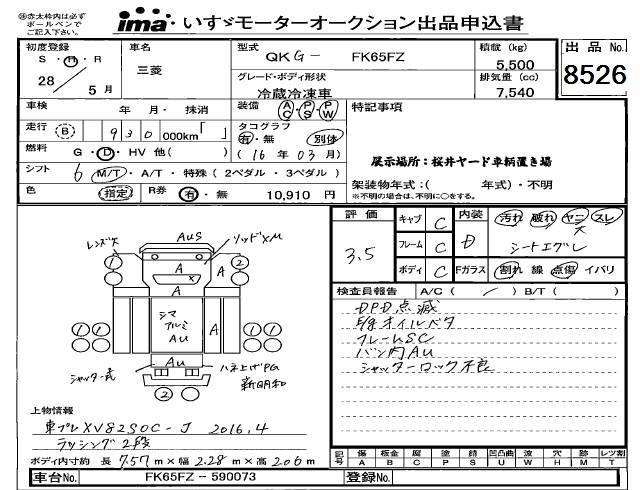 ㊟赤太枠内は必ず
ボールペンで
ご記入下さい。
ima いすゞモーターオークション出品申込書
初度登録
S・H・R
28 / 5月
車名
三菱
型式
QKG- FK65FZ
グレード・ボディ形状
冷蔵冷凍車
積載 (kg)
5,500
排気量 (cc)
7,540
出品No.
8526
車検 年 月・抹消
走行 (B) 930 000km「 」
燃料 G・D・HV 他( )
シフト 6 M/T・A/T・特殊(2ペダル・3ペダル)
色 指定 R券 有・無 10,910円
装備 AC PS PW
タコグラフ
有・無 別体
(16年03月)
特記事項
展示場所：桜井ヤード車柄置き場
架装物年式：( 年式)・不明
※不明の場合は、不明に○をする。
レンズ欠 AuS ソッドXM
1 A 2
A X
A シマ アルミ AU A
Au
シャッター式 ハネ上げPG
新明和
2
上物情報
東プレ XV82SOC-J 2016.4
ラッシング2段
ボディ内寸約 長 7.57m×幅 2.28m×高 2.06m
評価
3.5
キャブ C
フレーム C
ボディ C
内装
D
Fガラス
汚れ 破れ ヤニ スレ
大
シートエグレ
割れ 線 点傷 イバリ
検査員報告 A/C( / ) B/T( )
DPD点滅
E/gオイルバタ
フレームSC
バン内AU
シャッターロック不良
記号 傷 板金 腐 塗 錆 凹凸曲 波 穴 跡 レツ割
A B C P S U W H M T
車台No. FK65FZ－590073 登録No.